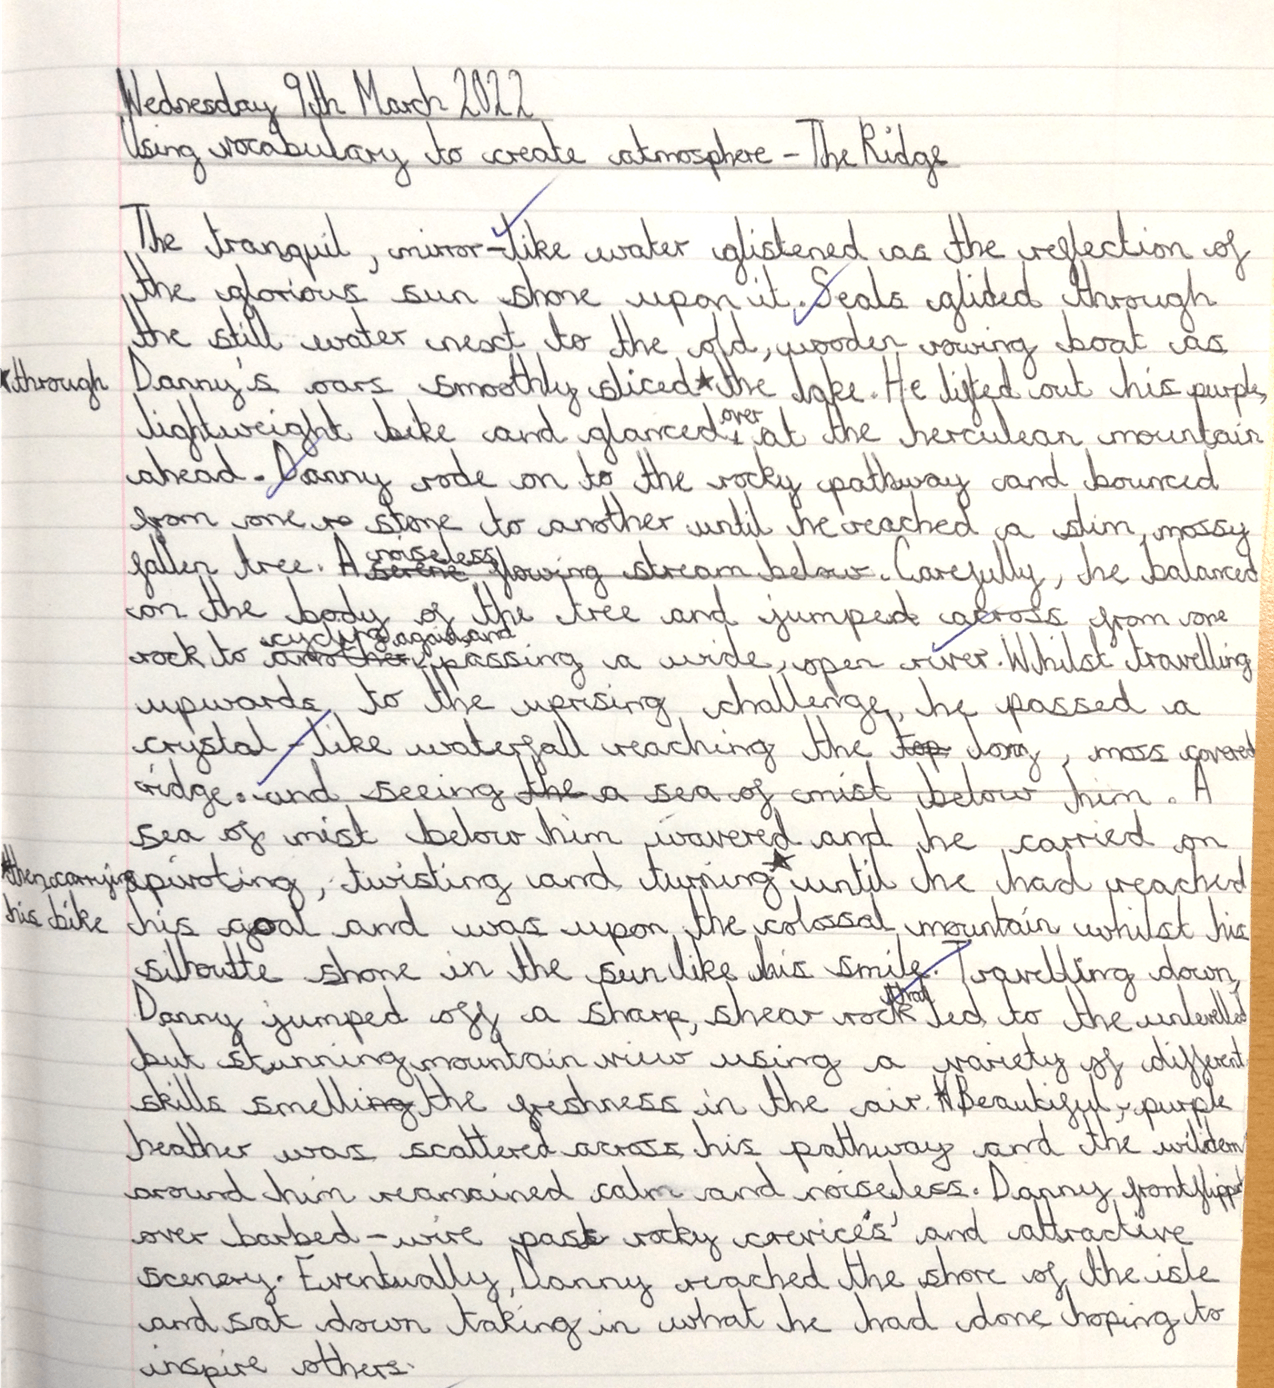 Wednesday 9th March 2022
Using vocabulary to create atmosphere - The Ridge
The tranquil, mirror-like water glistened as the reflection of
the glorious sun shone upon it. Seals glided through
the still water next to the old, wooden rowing boat as
*through Danny's oars smoothly sliced * the lake. He lifted out his purple,
lightweight bike and glanced, over at the herculean mountain
ahead. Danny rode on to the rocky pathway and bounced
from one ro stone to another until he reached a slim, mossy
fallen tree. A serene noiseless flowing stream below. Carefully, he balanced
on the body of the tree and jumped across from one
rock to another, cycling again and passing a wide, open river. Whilst travelling
upwards, to the uprising challenge, he passed a
crystal-like waterfall reaching the top long, moss covered
ridge. and seeing the a sea of mist below him. A
sea of mist below him wavered and he carried on
*then carrying his bike pivoting, twisting and turning * until he had reached
his goal and was upon the colossal mountain whilst his
silhoutte shone in the sun like his smile. Travelling down,
Danny jumped off a sharp, shear rock that led to the unlevelled
but stunning mountain view using a variety of different
skills smelling the freshness in the air. Beautiful, purple
heather was scattered across his pathway and the wildern
around him reamained calm and noiseless. Danny frontflipped
over barbed-wire past rocky crevices' and attractive
scenery. Eventually, Danny reached the shore of the isle
and sat down taking in what he had done hoping to
inspire others.